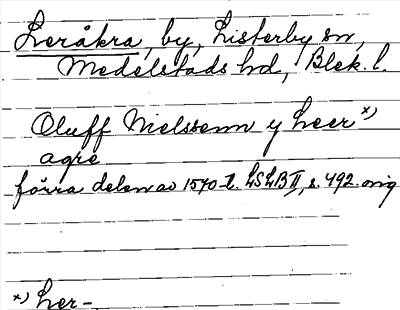 Leråkra, by, Listerby sn,
Medelstads hd, Blek. l.
Oluff Nielssenn y Leer x)
agre
förra delen av 1540-t. LSLB II, s. 492. orig
x) Ler-